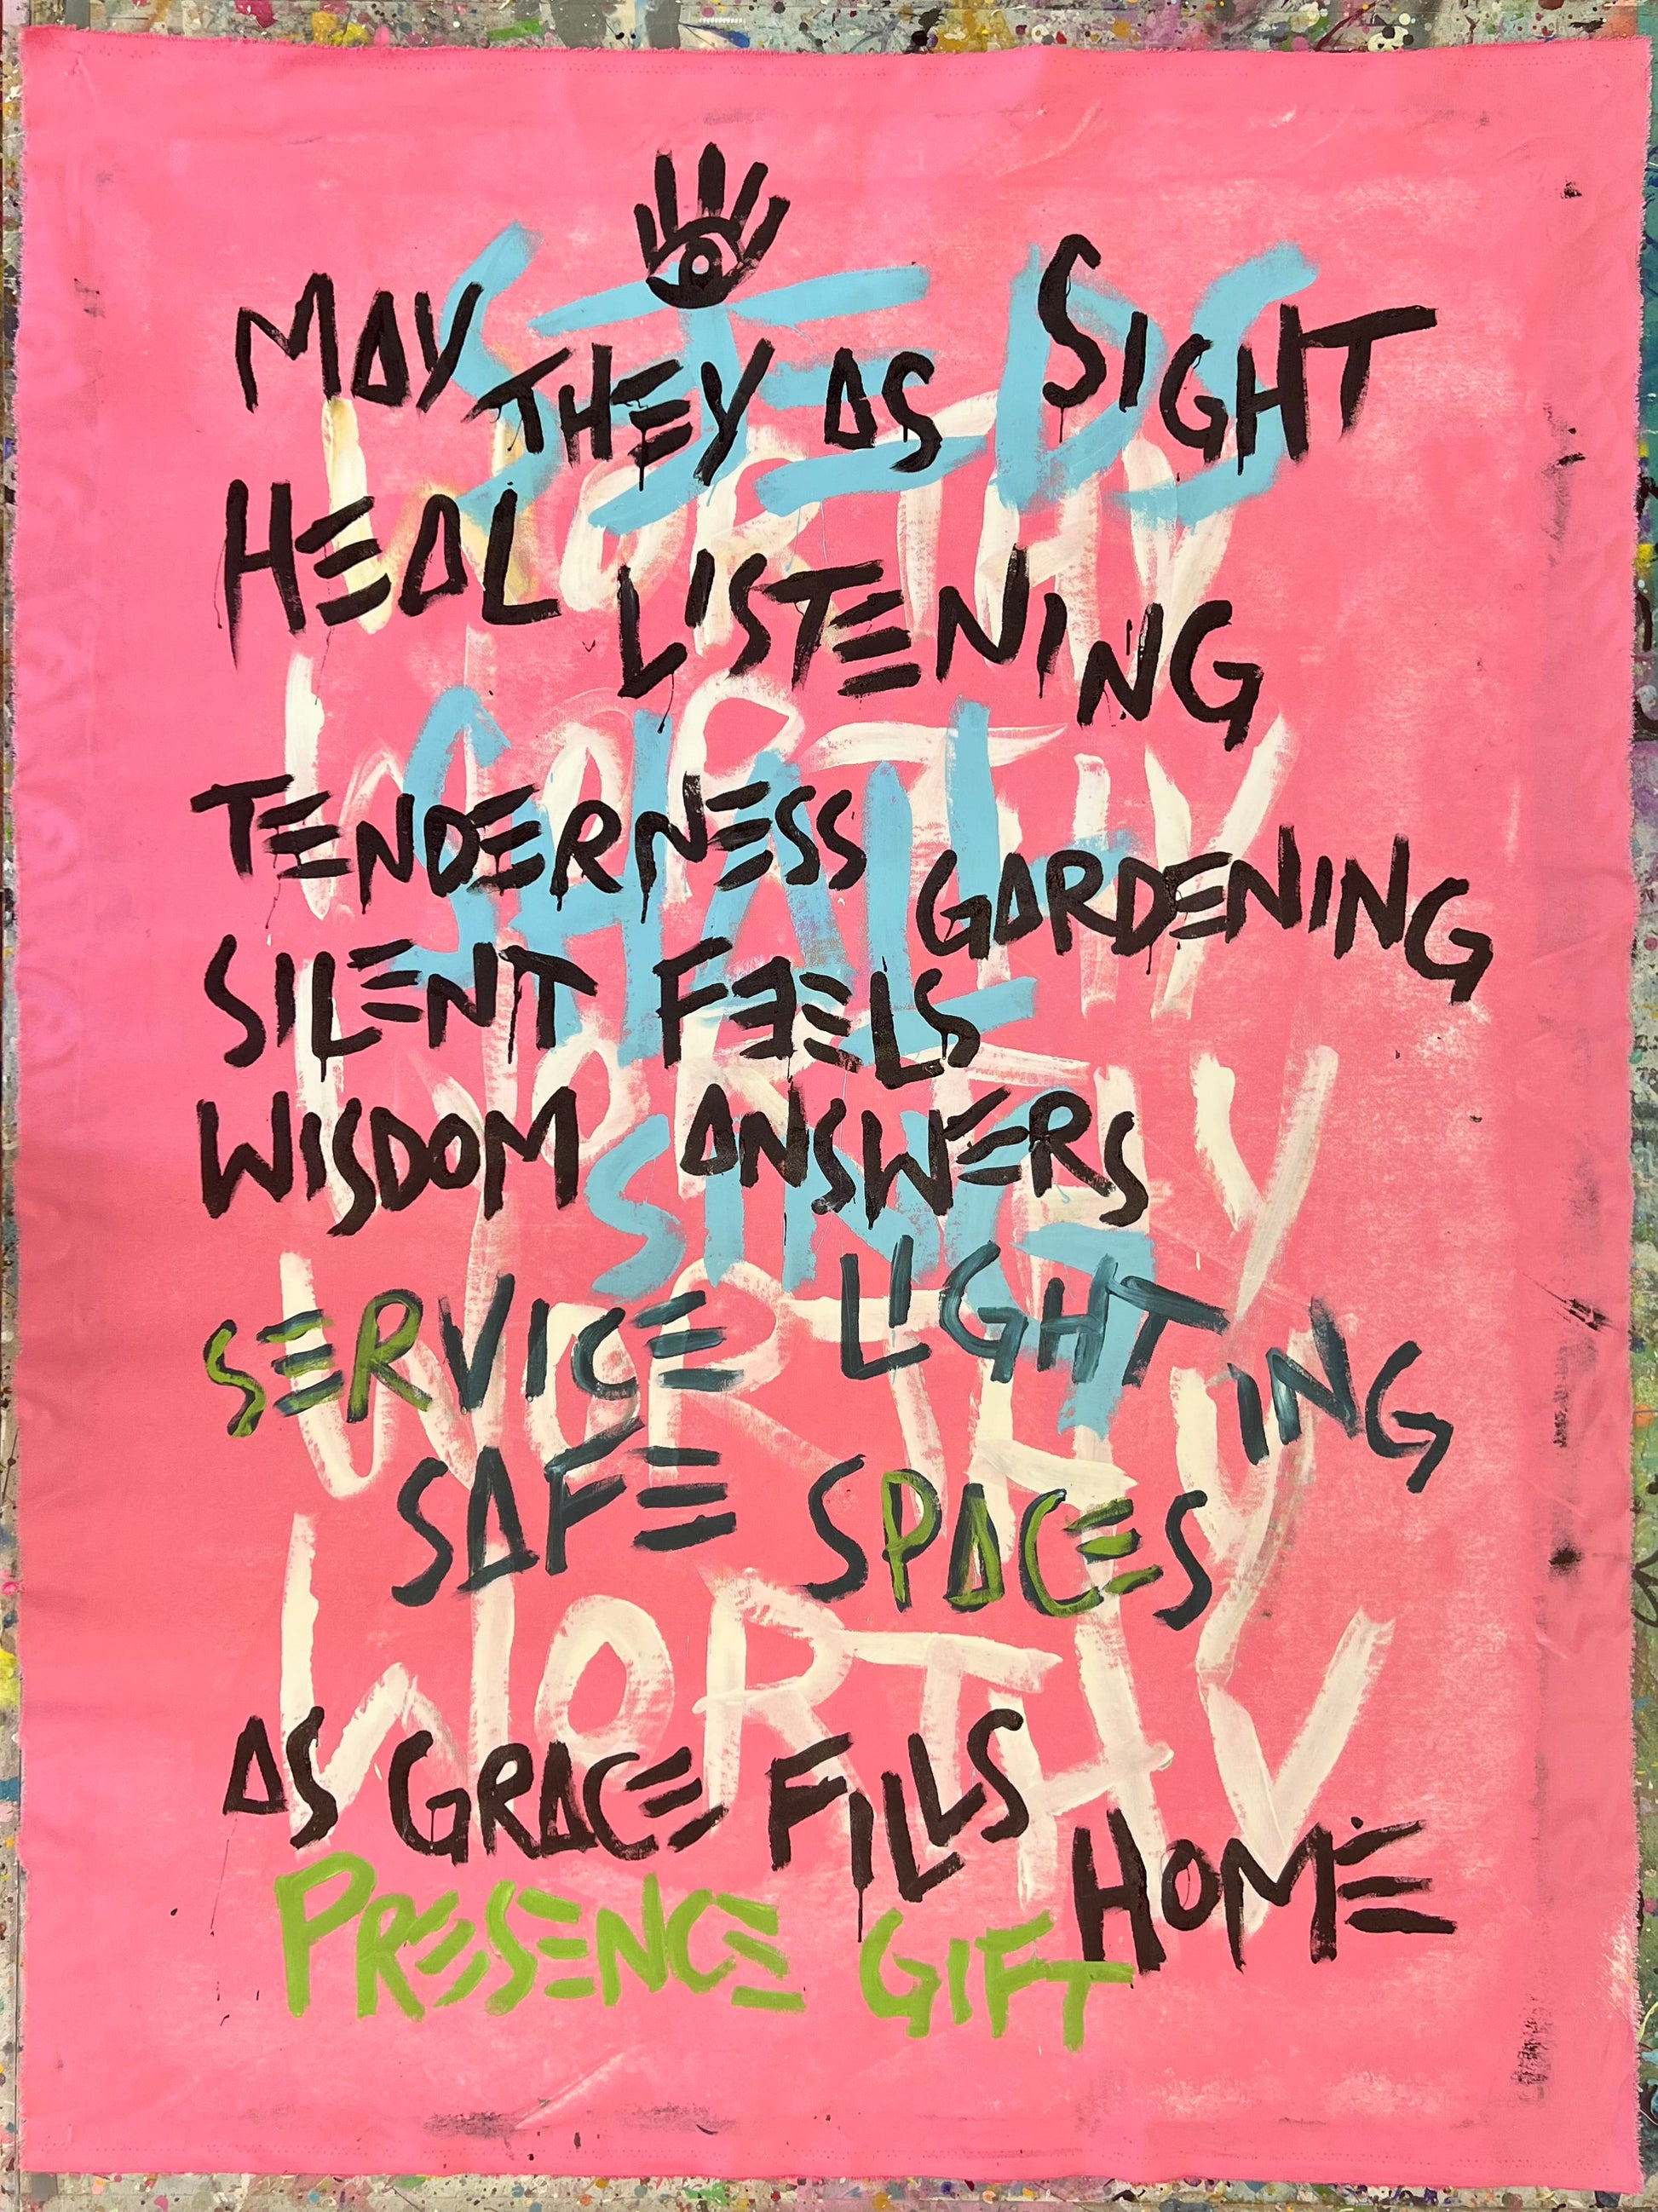 MAY THEY AS SIGHT
HEAL LISTENING
TENDERNESS GARDENING
SILENT FEELS
WISDOM ANSWERS
SERVICE LIGHTING
SAFE SPACES
AS GRACE FILLS HOME
PRESENCE GIFT
SHALL
SING
WORTHY
WORTHY
WORTHY
WORTHY
WORTHY